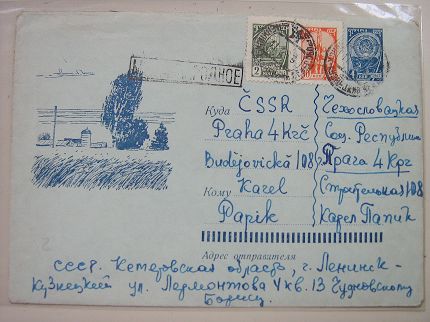 2
4
НОЕ
Куда ČSSR Чехословацкая
Praha 4 Krč Соц. Республика
Budějovická 108 Прага 4 Крч
Кому Karel Строительская 108
Papík Карел Папик
Адрес отправителя
СССР. Кемеровская область, г. Ленинск-
Кузнецкий ул. Лермонтова 4 кв. 13 Чудновскому
Борису